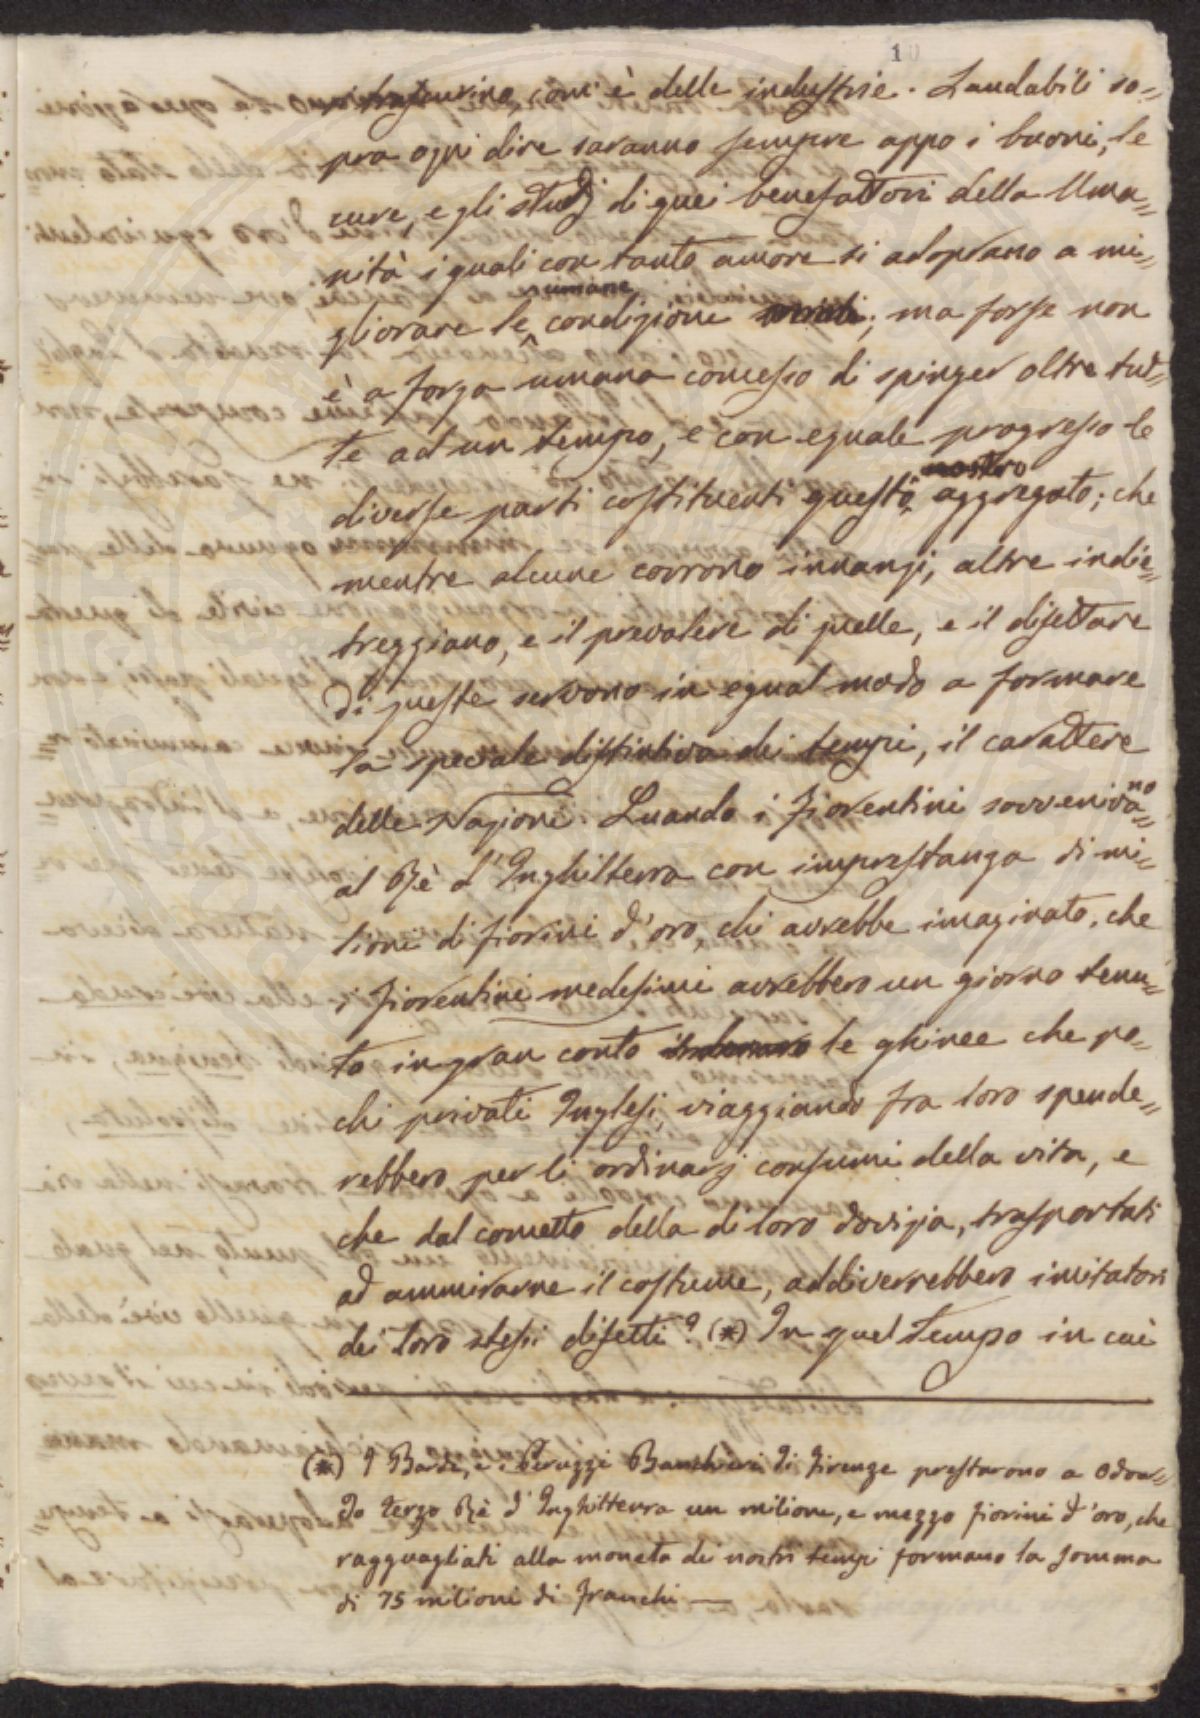 10
com'è delle industrie. Laudabili so=
pra ogni dire saranno sempre appo i buoni, le
cure, e gli studj di quei benefattori della Uma=
nità i quali con tanto amore si adoprano a mi=
gliorare le umane condizioni; ma forse non
è a forza umana concesso di spinger oltre tut=
te ad un tempo, e con eguale progresso le
diverse parti costituenti questo nostro aggregato; che
mentre alcune corrono innanzi, altre indie=
treggiano, e il prevalere di quelle, e il difettare
di queste servono in egual modo a formare
la speciale distintiva dei tempi, il carattere
delle Nazioni. Quando i Fiorentini sovveniva=no
al Rè d'Inghilterra con imprestanza di mi=
lioni di fiorini d'oro, chi avrebbe imaginato, che
i Fiorentini medesimi avrebbero un giorno tenu=
to in gran conto le ghinee che po=
chi privati Inglesi, viaggiando fra loro spende=
rebbero per li ordinarj consumi della vita, e
che dal cometto della di loro dovizia, trasportati
ad ammirarne il costume, addiverrebbero imitatori
dei loro stessi difetti? (*) In quel tempo in cui
(*) I Bardi, e i Peruzzi Banchieri di Firenze prestarono a Odoar=
do terzo Rè d'Inghilterra un milione, e mezzo fiorini d'oro, che
ragguagliati alla moneta dei nostri tempi formano la somma
di 75 milioni di Franchi —